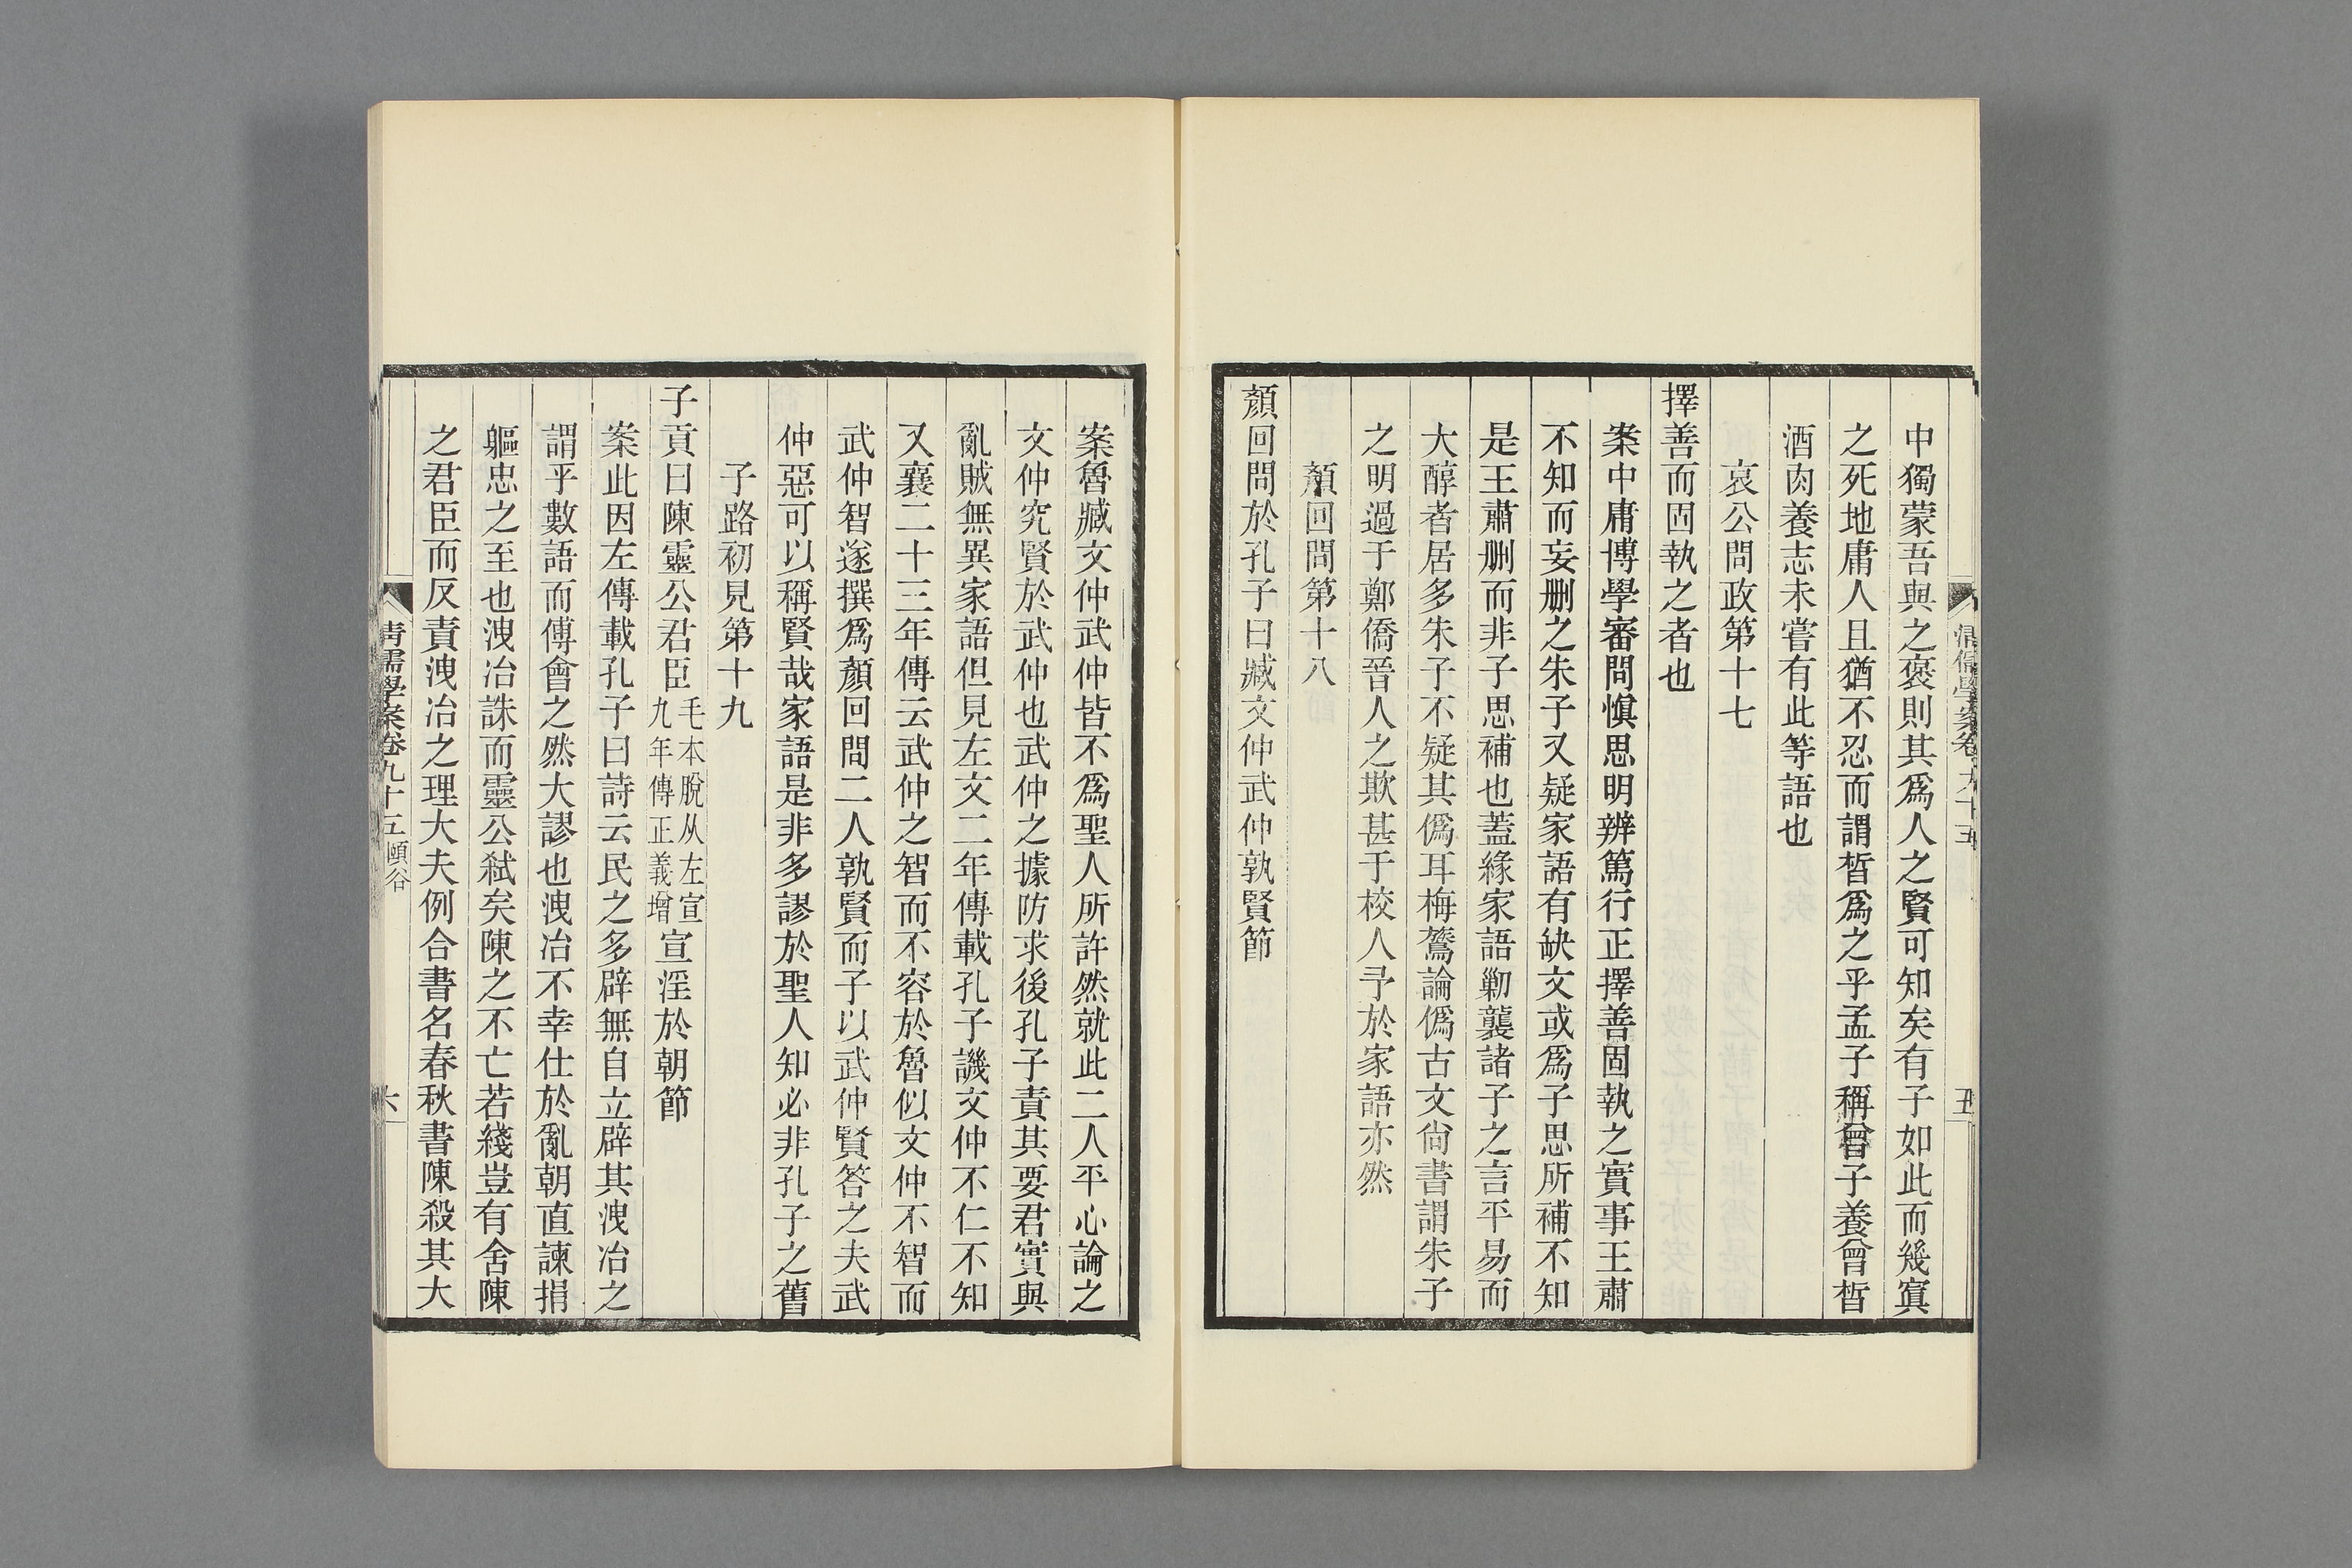 清儒學案卷九十五
五
中獨蒙吾與之褒則其爲人之賢可知矣有子如此而幾寘
之死地庸人且猶不忍而謂晳爲之乎孟子稱曾子養曾晳
酒肉養志未嘗有此等語也
哀公問政第十七
擇善而固執之者也
案中庸博學審問愼思明辨篤行正擇善固執之實事王肅
不知而妄刪之朱子又疑家語有缺文或爲子思所補不知
是王肅刪而非子思補也蓋緣家語勦襲諸子之言平易而
大醇者居多朱子不疑其僞耳梅鷟論僞古文尙書謂朱子
之明過于鄭僑晉人之欺甚于校人予於家語亦然
顏回問第十八
顏回問於孔子曰臧文仲武仲孰賢節
案魯臧文仲武仲皆不爲聖人所許然就此二人平心論之
文仲究賢於武仲也武仲之據防求後孔子責其要君實與
亂賊無異家語但見左文二年傳載孔子譏文仲不仁不知
又襄二十三年傳云武仲之智而不容於魯似文仲不智而
武仲智遂撰爲顏回問二人孰賢而子以武仲賢答之夫武
仲惡可以稱賢哉家語是非多謬於聖人知必非孔子之舊
子路初見第十九
子貢曰陳靈公君臣毛本脫从左宣九年傳正義增宣淫於朝節
案此因左傳載孔子曰詩云民之多辟無自立辟其洩冶之
謂乎數語而傅會之然大謬也洩冶不幸仕於亂朝直諫捐
軀忠之至也洩冶誅而靈公弒矣陳之不亡若綫豈有舍陳
之君臣而反責洩冶之理大夫例合書名春秋書陳殺其大
清儒學案卷九十五 頤谷
六